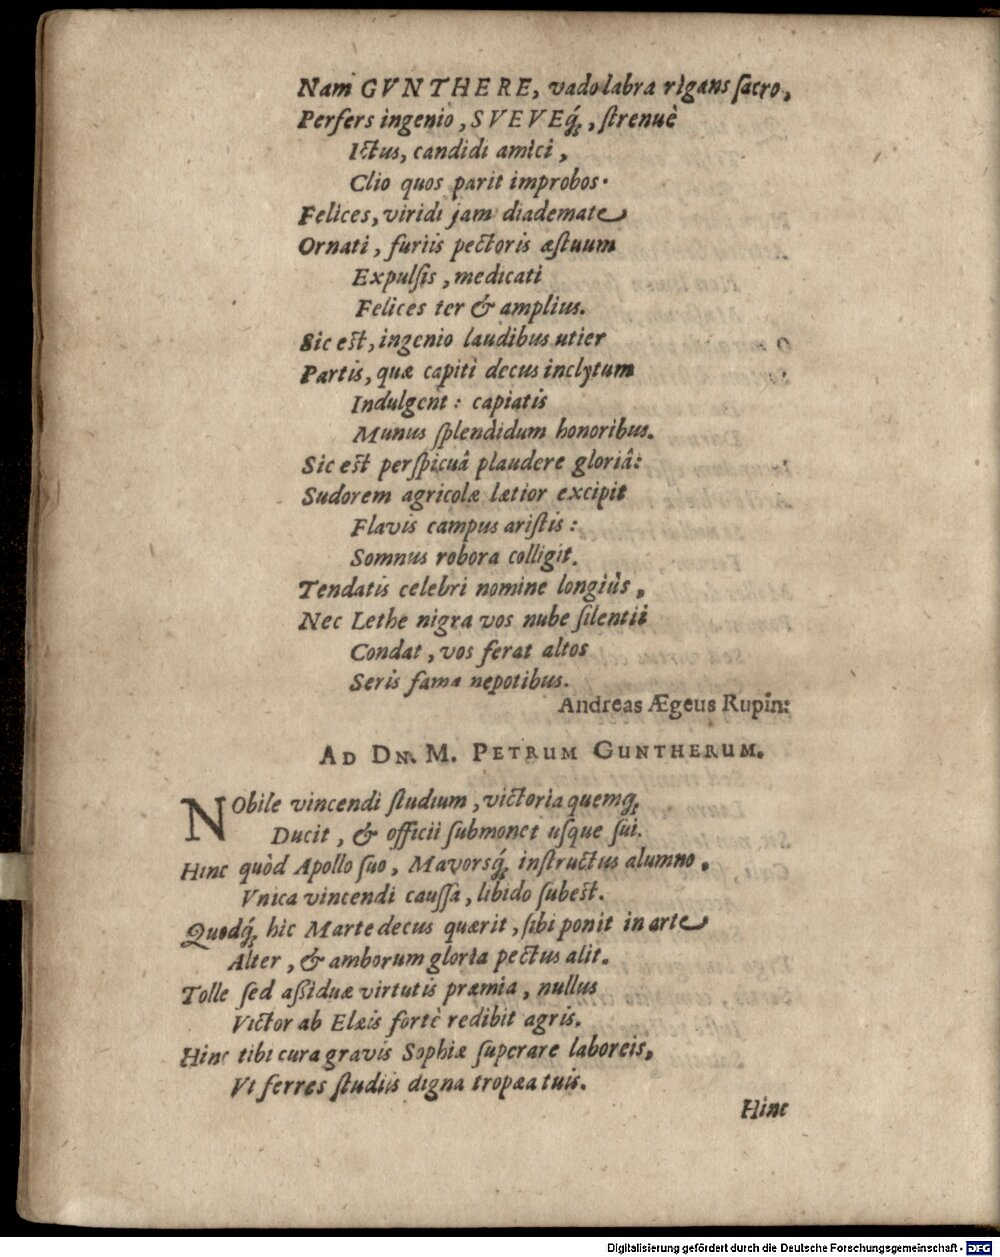 Nam GVNTHERE, vado labra rigans ſacro,
Perfers ingenio, SVEVEq́;, ſtrenuè
Ictus, candidi amici,
Clio quos parit improbos.
Felices, viridi jam diademate
Ornati, furiis pectoris æſtuum
Expulſis, medicati
Felices ter & amplius.
Sic eſt, ingenio laudibus utier
Partis, quæ capiti decus inclytum
Indulgent: capiatis
Munus ſplendidum honoribus.
Sic eſt perſpicuâ plaudere gloriâ:
Sudorem agricolæ lætior excipit
Flavis campus ariſtis:
Somnus robora colligit.
Tendatis celebri nomine longiùs,
Nec Lethe nigra vos nube ſilentii
Condat, vos ferat altos
Seris fama nepotibus.
Andreas Ægeus Rupin:
AD DN. M. PETRUM GUNTHERUM.
NObile vincendi ſtudium, victoria quemq;
Ducit, & officii ſubmonet uſque ſui.
Hinc quòd Apollo ſuo, Mavorsq́; inſtructus alumno,
Vnica vincendi cauſſa, libido ſubeſt.
Quodq́; hic Marte decus quærit, ſibi ponit in arte
Alter, & amborum gloria pectus alit.
Tolle ſed aßiduæ virtutis præmia, nullus
Victor ab Elæis fortè redibit agris.
Hinc tibi cura gravis Sophiæ ſuperare laboreis,
Vt ferres ſtudiis digna tropæa tuis.
Hinc
Digitalisierung gefördert durch die Deutsche Forschungsgemeinschaft - DFG